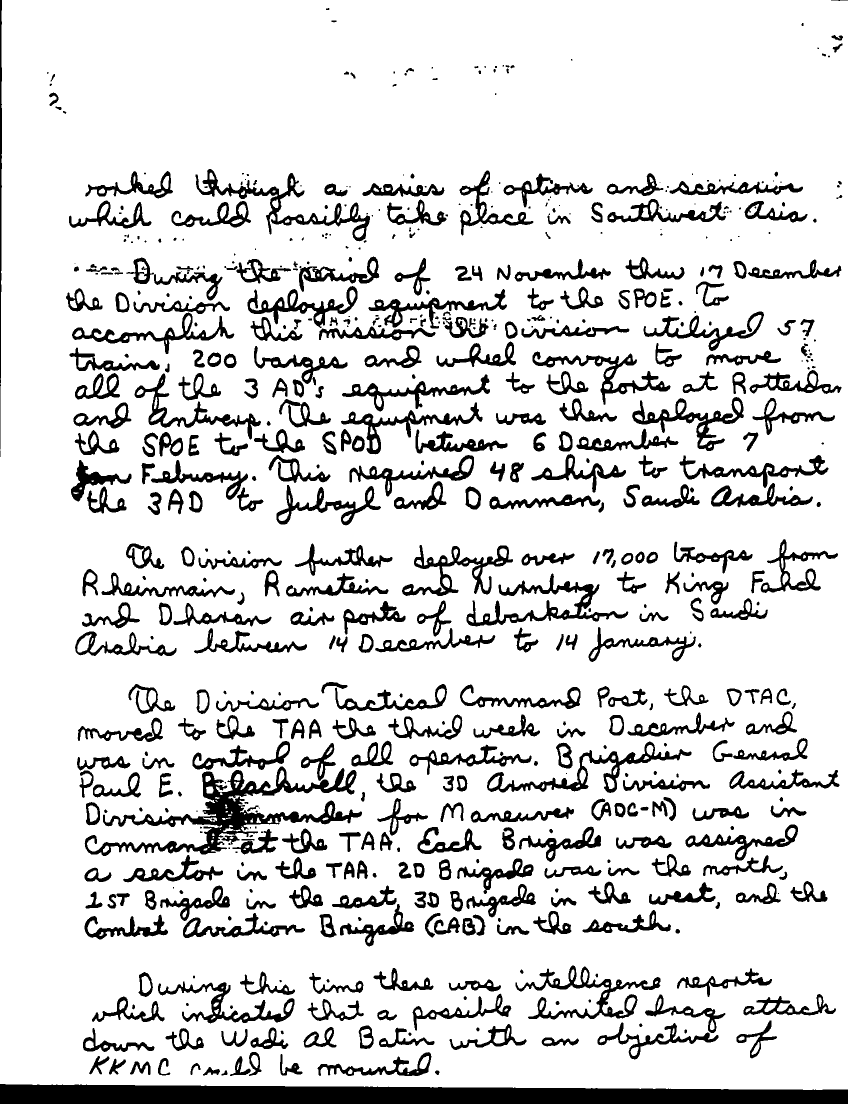 2
7
rorked through a series of options and scenarios
which could possibly take place in Southwest Asia.
During the period of 24 November thru 17 December
the Division deployed equipment to the SPOE. To
accomplish this mission the Division utilized 57
trains, 200 barges and wheel convoys to move
all of the 3 AD's equipment to the ports at Rotterdam
and Antwerp. The equipment was then deployed from
the SPOE to the SPOD between 6 December to 7
Jan Febuary. This required 48 ships to transport
the 3AD to Jubayl and Damman, Saudi Arabia.
The Division further deployed over 17,000 troops from
Rheinmain, Ramstein and Nurnberg to King Fahd
and Dharan air ports of debarkation in Saudi
Arabia between 14 December to 14 January.
The Division Tactical Command Post, the DTAC,
moved to the TAA the thrid week in December and
was in control of all operation. Brigadier General
Paul E. Blackwell, the 3D Armored Division Assistant
Division Commander for Maneuver (ADC-M) was in
Command at the TAA. Each Brigade was assigned
a sector in the TAA. 2D Brigade was in the north,
1ST Brigade in the east, 3D Brigade in the west, and the
Combat Aviation Brigade (CAB) in the south.
During this time there was intelligence reports
which indicated that a possible limited Iraq attack
down the Wadi Al Batin with an objective of
KKMC could be mounted.